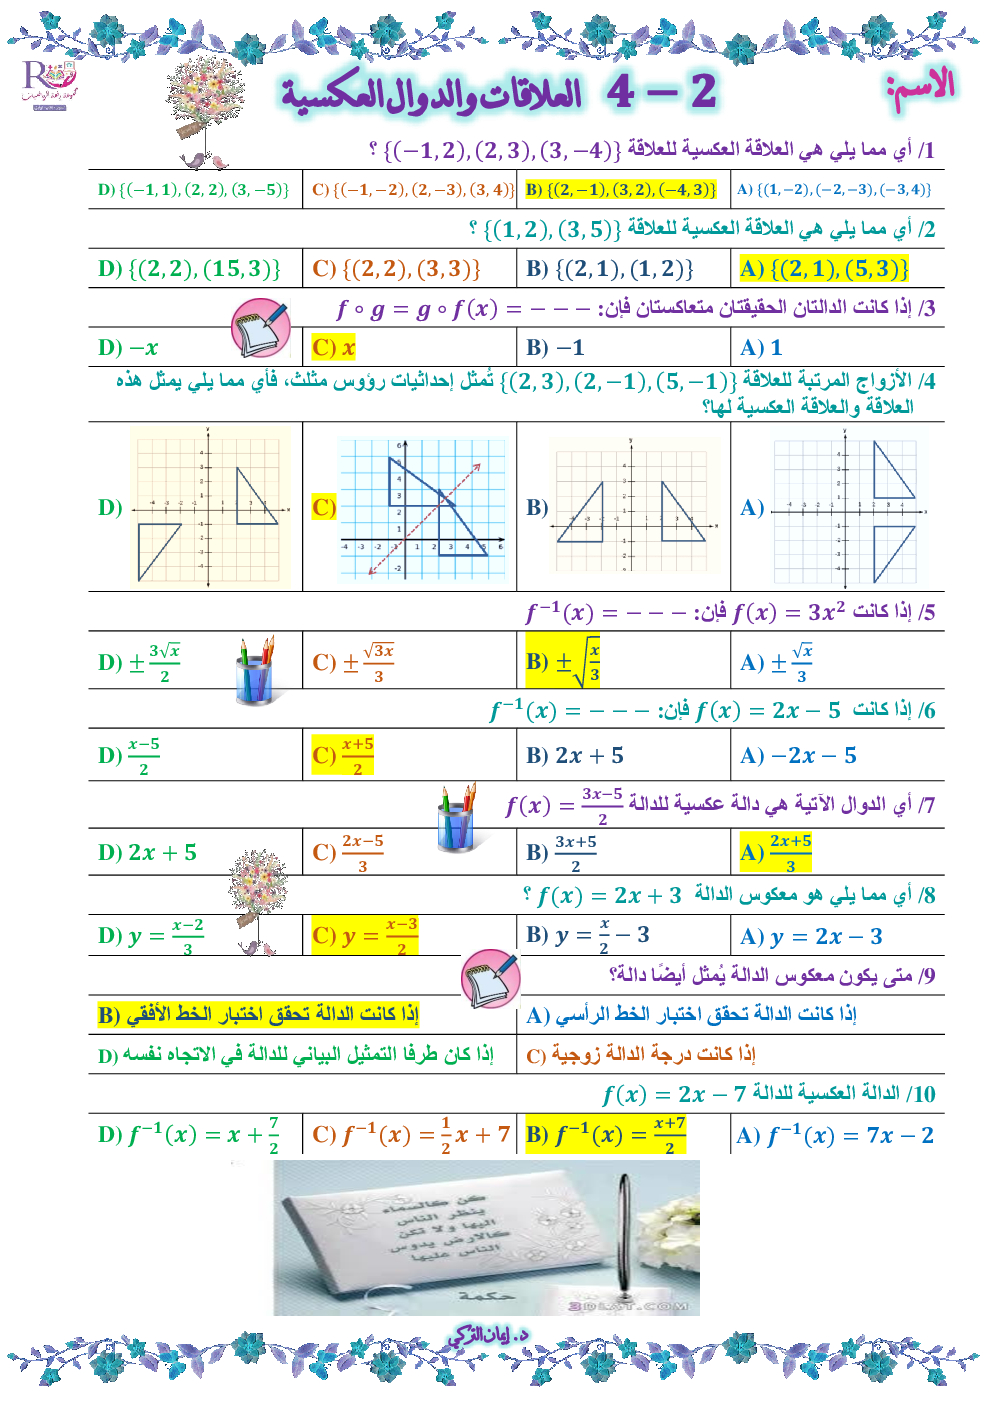 الاسم:
2 – 4 العلاقات والدوال العكسية
1/ أي مما يلي هي العلاقة العكسية للعلاقة {(−1, 2), (2, 3), (3, −4)} ؟
A) {(1, −2), (−2, −3), (−3, 4)}
B) {(2, −1), (3, 2), (−4, 3)}
C) {(−1, −2), (2, −3), (3, 4)}
D) {(−1, 1), (2, 2), (3, −5)}
2/ أي مما يلي هي العلاقة العكسية للعلاقة {(1, 2), (3, 5)} ؟
A) {(2, 1), (5, 3)}
B) {(2, 1), (1, 2)}
C) {(2, 2), (3, 3)}
D) {(2, 2), (15, 3)}
3/ إذا كانت الدالتان الحقيقتان متعاكستان فإن: f ∘ g = g ∘ f(x) = − − −
A) 1
B) −1
C) x
D) −x
4/ الأزواج المرتبة للعلاقة {(2, 3), (2, −1), (5, −1)} تُمثل إحداثيات رؤوس مثلث، فأي مما يلي يمثل هذه
العلاقة والعلاقة العكسية لها؟
A)
B)
C)
D)
5/ إذا كانت f(x) = 3x² فإن: f⁻¹(x) = − − −
A) ± √x/3
B) ± √(x/3)
C) ± √(3x)/3
D) ± 3√x/2
6/ إذا كانت f(x) = 2x − 5 فإن: f⁻¹(x) = − − −
A) −2x − 5
B) 2x + 5
C) (x+5)/2
D) (x−5)/2
7/ أي الدوال الآتية هي دالة عكسية للدالة f(x) = (3x−5)/2
A) (2x+5)/3
B) (3x+5)/2
C) (2x−5)/3
D) 2x + 5
8/ أي مما يلي هو معكوس الدالة f(x) = 2x + 3 ؟
A) y = 2x − 3
B) y = x/2 − 3
C) y = (x−3)/2
D) y = (x−2)/3
9/ متى يكون معكوس الدالة يُمثل أيضًا دالة؟
A) إذا كانت الدالة تحقق اختبار الخط الرأسي
B) إذا كانت الدالة تحقق اختبار الخط الأفقي
C) إذا كانت درجة الدالة زوجية
D) إذا كان طرفا التمثيل البياني للدالة في الاتجاه نفسه
10/ الدالة العكسية للدالة f(x) = 2x − 7
A) f⁻¹(x) = 7x − 2
B) f⁻¹(x) = (x+7)/2
C) f⁻¹(x) = 1/2 x + 7
D) f⁻¹(x) = x + 7/2
كن كالسماء
ينظر الناس
اليها ولا تكن
كالارض يدوس
الناس عليها
حكمة
3DLAT.COM
د. إيمان التركي